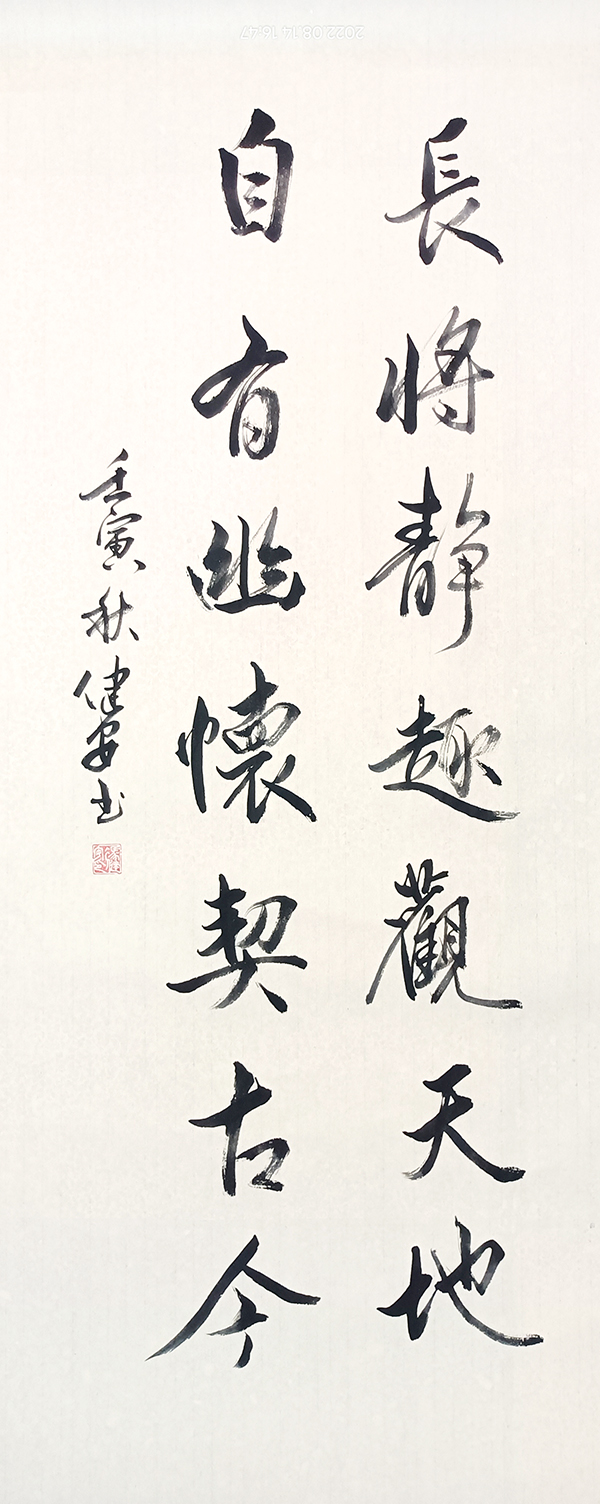 長將靜趣觀天地
自有幽懷契古今
壬寅秋健安书
2022.08.14 16:47